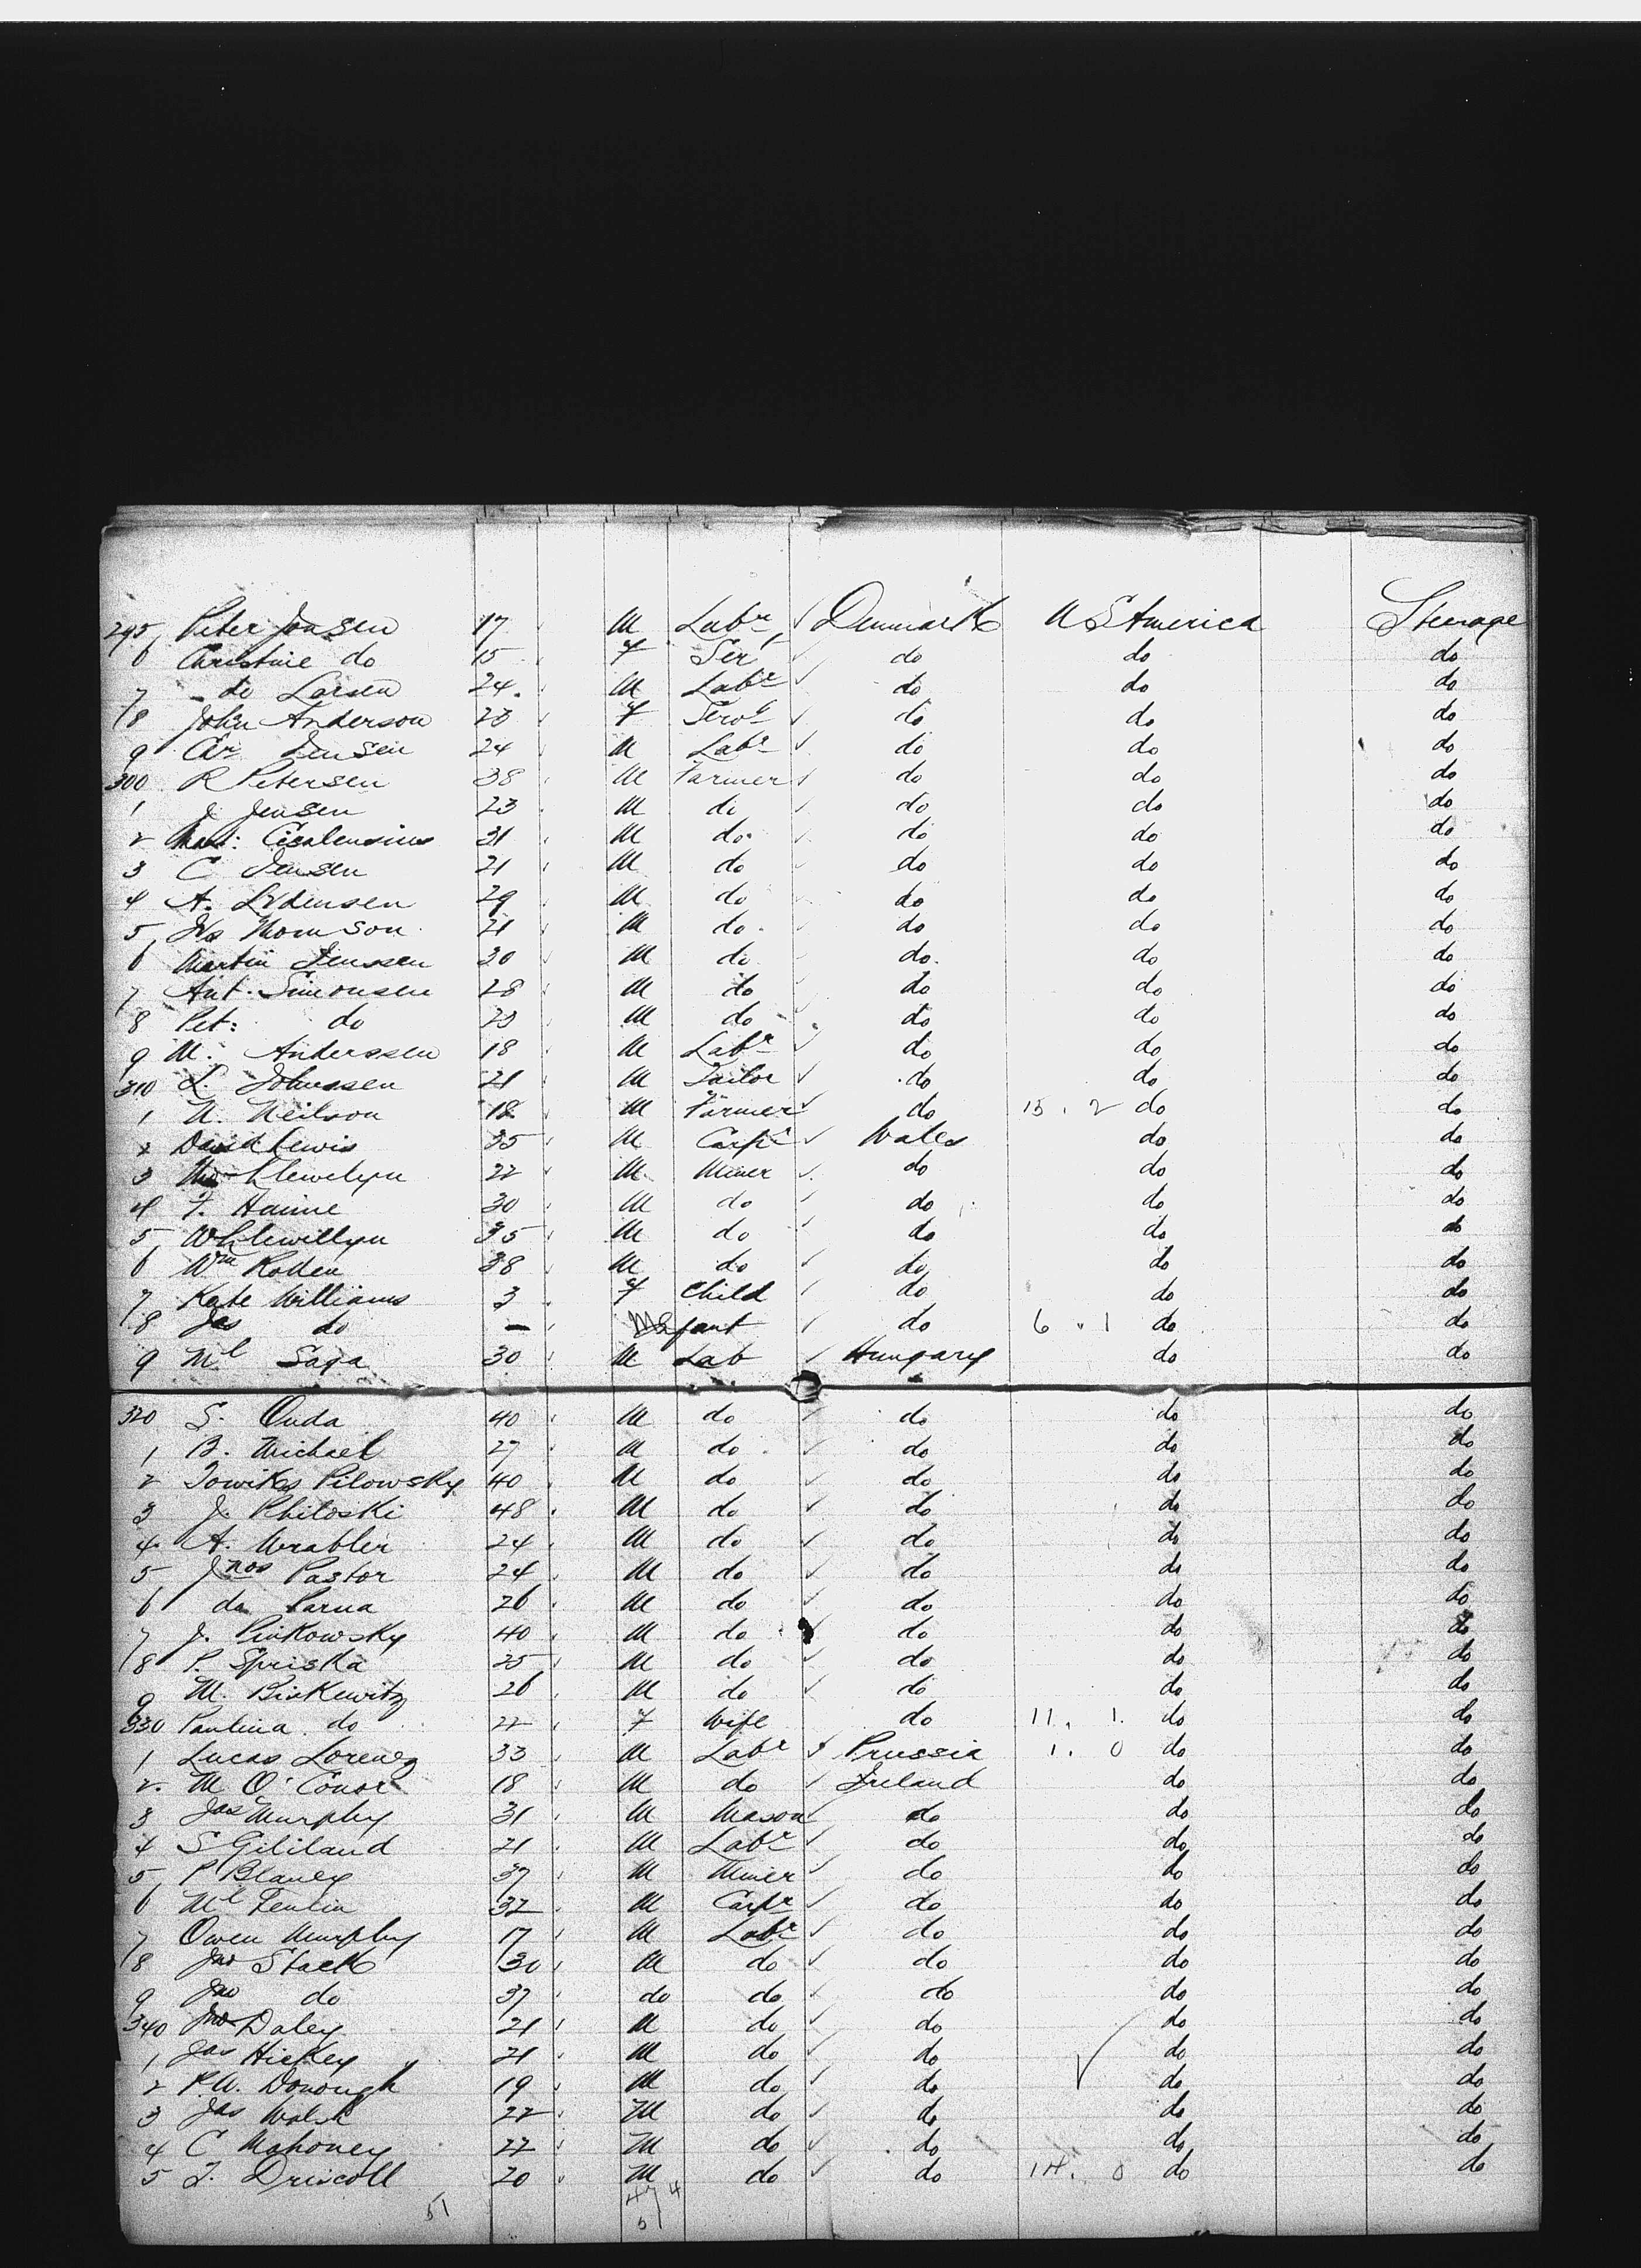 295 Peter Jonsen 17 M Labr Denmark U S America Steerage
6 Christine do 15 F Ser do do do
7 do Larsen 24 M Labr do do do
8 John Anderson 23 F Servt do do do
9 Jensen 24 M Labr do do do
300 R Petersen 38 M Farmer do do do
1 J. Jensen 23 M do do do do
2 31 M do do do do
3 C Jensen 21 M do do do do
4 A. 29 M do do do do
5 Thomson 21 M do do do do
6 Martin Jenssen 30 M do do do do
7 Ant. Simonsen 28 M do do do do
8 Pet: do 23 M do do do do
9 M. Anderssen 18 M Labr do do do
310 L. Johnssen 21 M Tailor do do do
1 N. Neilson 18 M Farmer do 15 . 2 do do
2 David Lewis 35 M Carpr Wales do do
3 Llewelyn 22 M Miner do do do
4 F. Hamie 30 M do do do do
5 W Llewillyn 35 M do do do do
6 Wm Rotten 38 M do do do do
7 Kate Williams 3 F Child do do do
8 Jas do — Infant do 6 . 1 do do
9 Ml Saga 30 M Lab Hungary do do
320 S. Onda 40 M do do do do
1 B. Michael 27 M do do do do
2 Towikes Pilowsky 40 M do do do do
3 J. Philoski 48 M do do do do
4 A. Wrabler 24 M do do do do
5 Jnos Pastor 24 M do do do do
6 do Parna 26 M do do do do
7 J. Pinkowsky 40 M do do do do
8 P. Spriska 25 M do do do do
9 M. Biskewitz 26 M do do do do
330 Paulina do 22 F Wife do 11 . 1. do do
1 Lucas Lorenz 33 M Labr Prussia 1 . 0 do do
2. M O'Conor 18 M do Ireland do do
3 Jas Murphy 31 M Mason do do do
4 S Gililand 21 M Labr do do do
5 P Blaney 37 M Miner do do do
6 Ml Fenlin 32 M Carpr do do do
7 Owen Murphy 17 M Labr do do do
8 Jno Stack 30 M do do do do
9 Jno do 37 do do do do do
340 Jno Daley 21 M do do do do
1 Jas Hickey 21 M do do do do
2 P.W. Donough 19 M do do do do
3 Jas Walsh 22 M do do do do
4 C Mahoney 22 M do do do do
5 J. Driscoll 20 M do do 14 . 0 do do
51 47 4
51